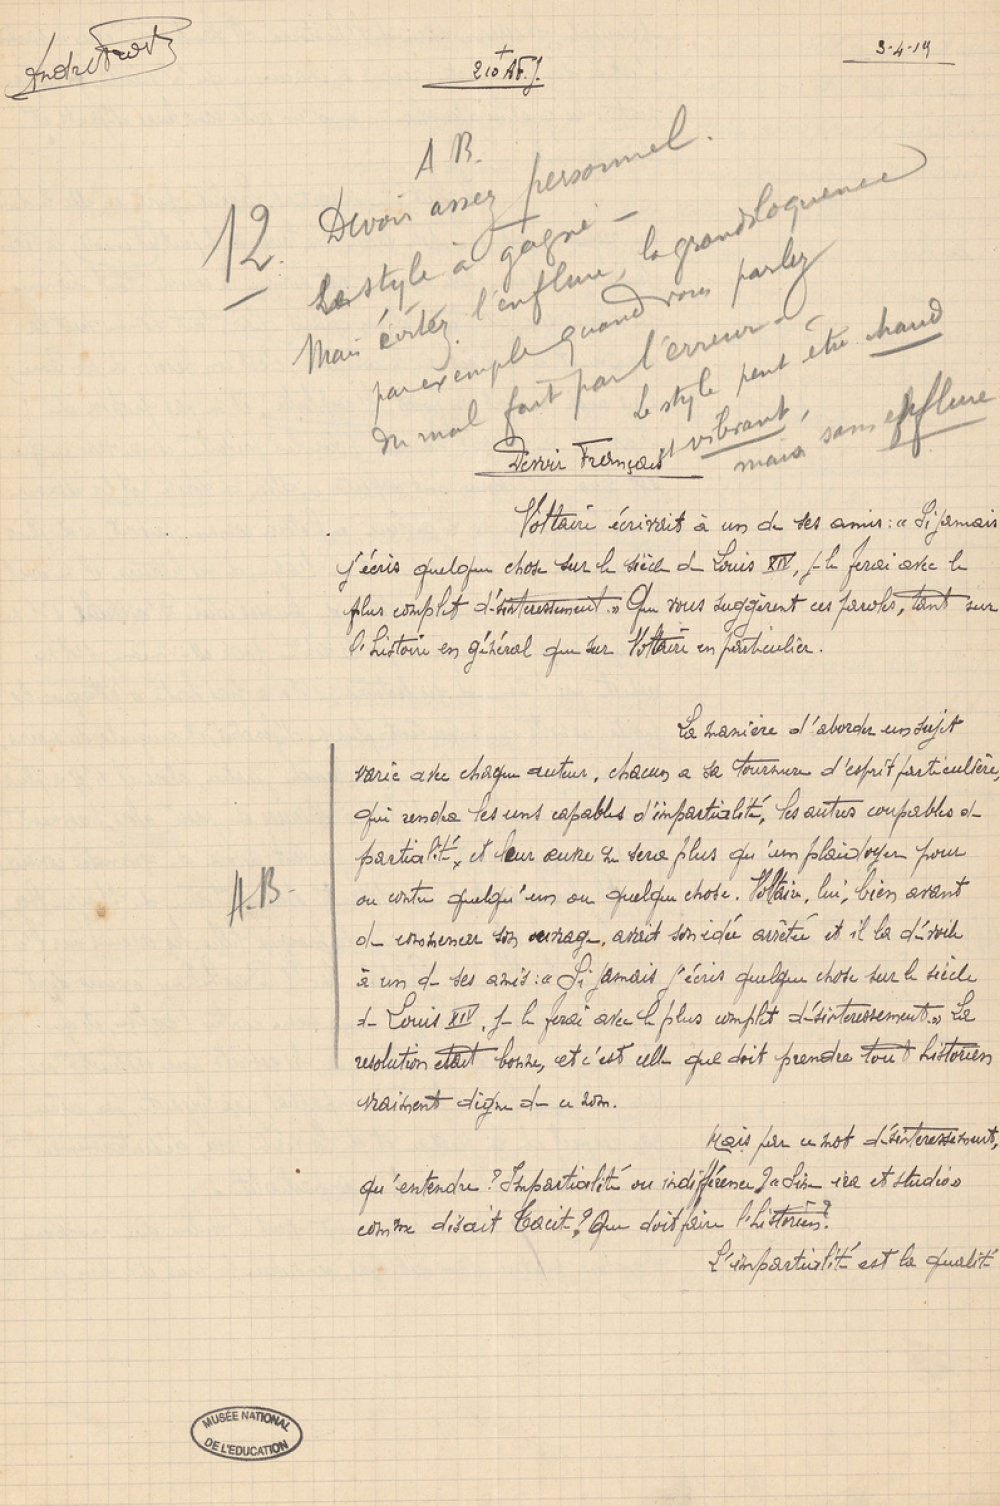 André
3-4-19
A B.
12.
Devoir assez personnel.
Le style a gagné -
Mais évitez l'enflure, la grandiloquence
par exemple quand vous parlez
du mal fait par l'erreur -
le style peut être chaud
et vibrant,
mais sans enflure
Devoir Français
Voltaire écrivait à un de ses amis : « Si jamais
j'écris quelque chose sur le siècle de Louis XIV, je le ferai avec le
plus complet désinteressement. » Que vous suggèrent ces paroles, tant sur
l'histoire en général que sur Voltaire en particulier.
La manière d'aborder un sujet
varie avec chaque auteur, chacun a sa tournure d'esprit particulière,
qui rendra les uns capables d'impartialité, les autres coupables de
partialité, et leur œuvre ne sera plus qu'un plaidoyer pour
ou contre quelqu'un ou quelque chose. Voltaire, lui, bien avant
de commencer son ouvrage, avait son idée arrêtée et il la dévoile
à un de ses amis : « Si jamais j'écris quelque chose sur le siècle
de Louis XIV, je le ferai avec le plus complet désinteressement. » La
resolution etait bonne, et c'est celle que doit prendre tout historien
vraiment digne de ce nom.
A.B-
Mais par ce mot désinteressement,
qu'entendre ? Impartialité ou indifférence ? « Sine ira et studio »
comme disait Tacite ? Que doit faire l'historien ?
L'impartialité est la qualité
MUSÉE NATIONAL
DE L'EDUCATION